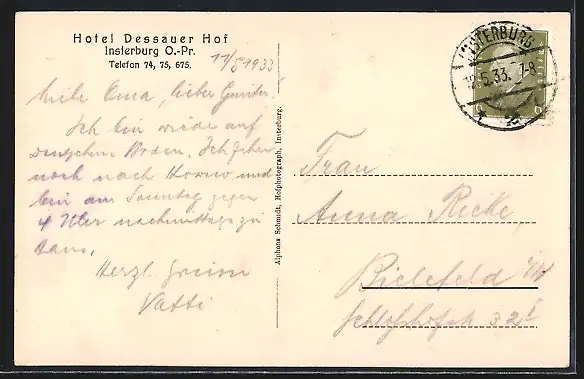 Hotel Dessauer Hof
Insterburg O.-Pr.
Telefon 74, 75, 675.
11/5 1933
Liebe Oma, lieber Günter!
Ich bin wieder auf
deutschem Boden. Ich fahre
noch nach und
bin am Sonntag gegen
4 Uhr nachmittags zu
Haus.
Herzl. Grüsse
Vatti
Alphons Schmidt, Hofphotograph, Insterburg.
INSTERBURG
12.5.33. 7-8
Frau
Anna Ricke,
Bielefeld i/W
32